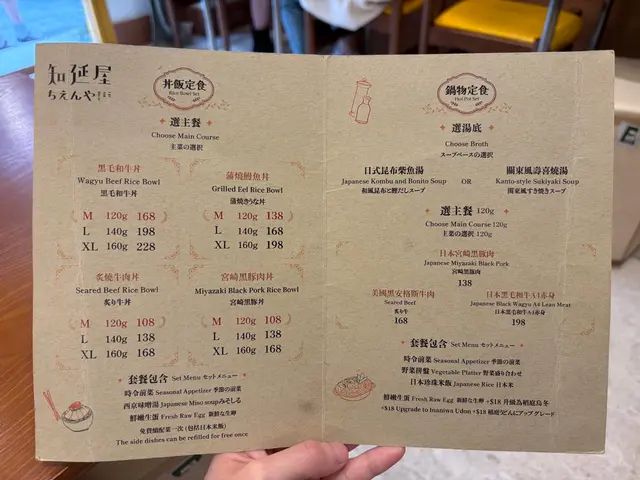 知延屋
ちえんや
丼飯定食
Rice Bowl Set
選主餐
Choose Main Course
主菜の選択
黑毛和牛丼
Wagyu Beef Rice Bowl
黒毛和牛丼
M 120g 168
L 140g 198
XL 160g 228
蒲燒鰻魚丼
Grilled Eel Rice Bowl
蒲焼きうな丼
M 120g 138
L 140g 168
XL 160g 198
炙燒牛肉丼
Seared Beef Rice Bowl
炙り牛丼
M 120g 108
L 140g 138
XL 160g 168
宮崎黑豚肉丼
Miyazaki Black Pork Rice Bowl
宮崎黒豚丼
M 120g 108
L 140g 138
XL 160g 168
套餐包含 Set Menu セットメニュー
時令前菜 Seasonal Appetizer 季節の前菜
西京味噌湯 Japanese Miso soup みそしる
鮮嫩生蛋 Fresh Raw Egg 新鮮な生卵
免費續配菜一次 (包括日本米飯)
The side dishes can be refilled for free once
鍋物定食
Hot Pot Set
選湯底
Choose Broth
スープベースの選択
日式昆布柴魚湯
Japanese Kombu and Bonito Soup
和風昆布と鰹だしスープ
OR
關東風壽喜燒湯
Kanto-style Sukiyaki Soup
関東風すき焼きスープ
選主餐 120g
Choose Main Course 120g
主菜の選択 120g
日本宮崎黑豚肉
Japanese Miyazaki Black Pork
宮崎黒豚肉
138
美國黑安格斯牛肉
Seared Beef
炙り牛
168
日本黑毛和牛A4赤身
Japanese Black Wagyu A4 Lean Meat
日本黒毛和牛A4赤身
198
套餐包含 Set Menu セットメニュー
時令前菜 Seasonal Appetizer 季節の前菜
野菜拼盤 Vegetable Platter 野菜盛り合わせ
日本珍珠米飯 Japanese Rice 日本米
鮮嫩生蛋 Fresh Raw Egg 新鮮な生卵 +$18 升級為稻庭烏冬
+$18 Upgrade to Inaniwa Udon +$18 稲庭うどんにアップグレード